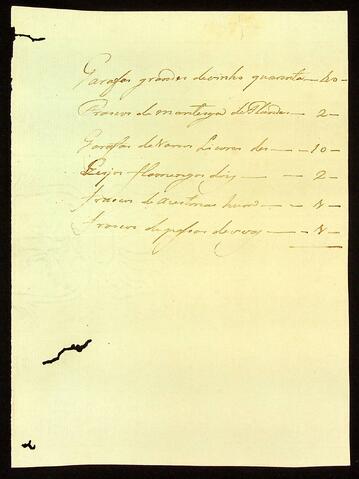 Garafas grandes de vinho quarenta — 40 —
Frascos de manteiga de Flandes — 2 —
Garafas de varios Licores des — 10 —
Queijos flamengos dois — 2 —
frascos de azeitonas hum — 1 —
frascos de passas de uvas — 1 —